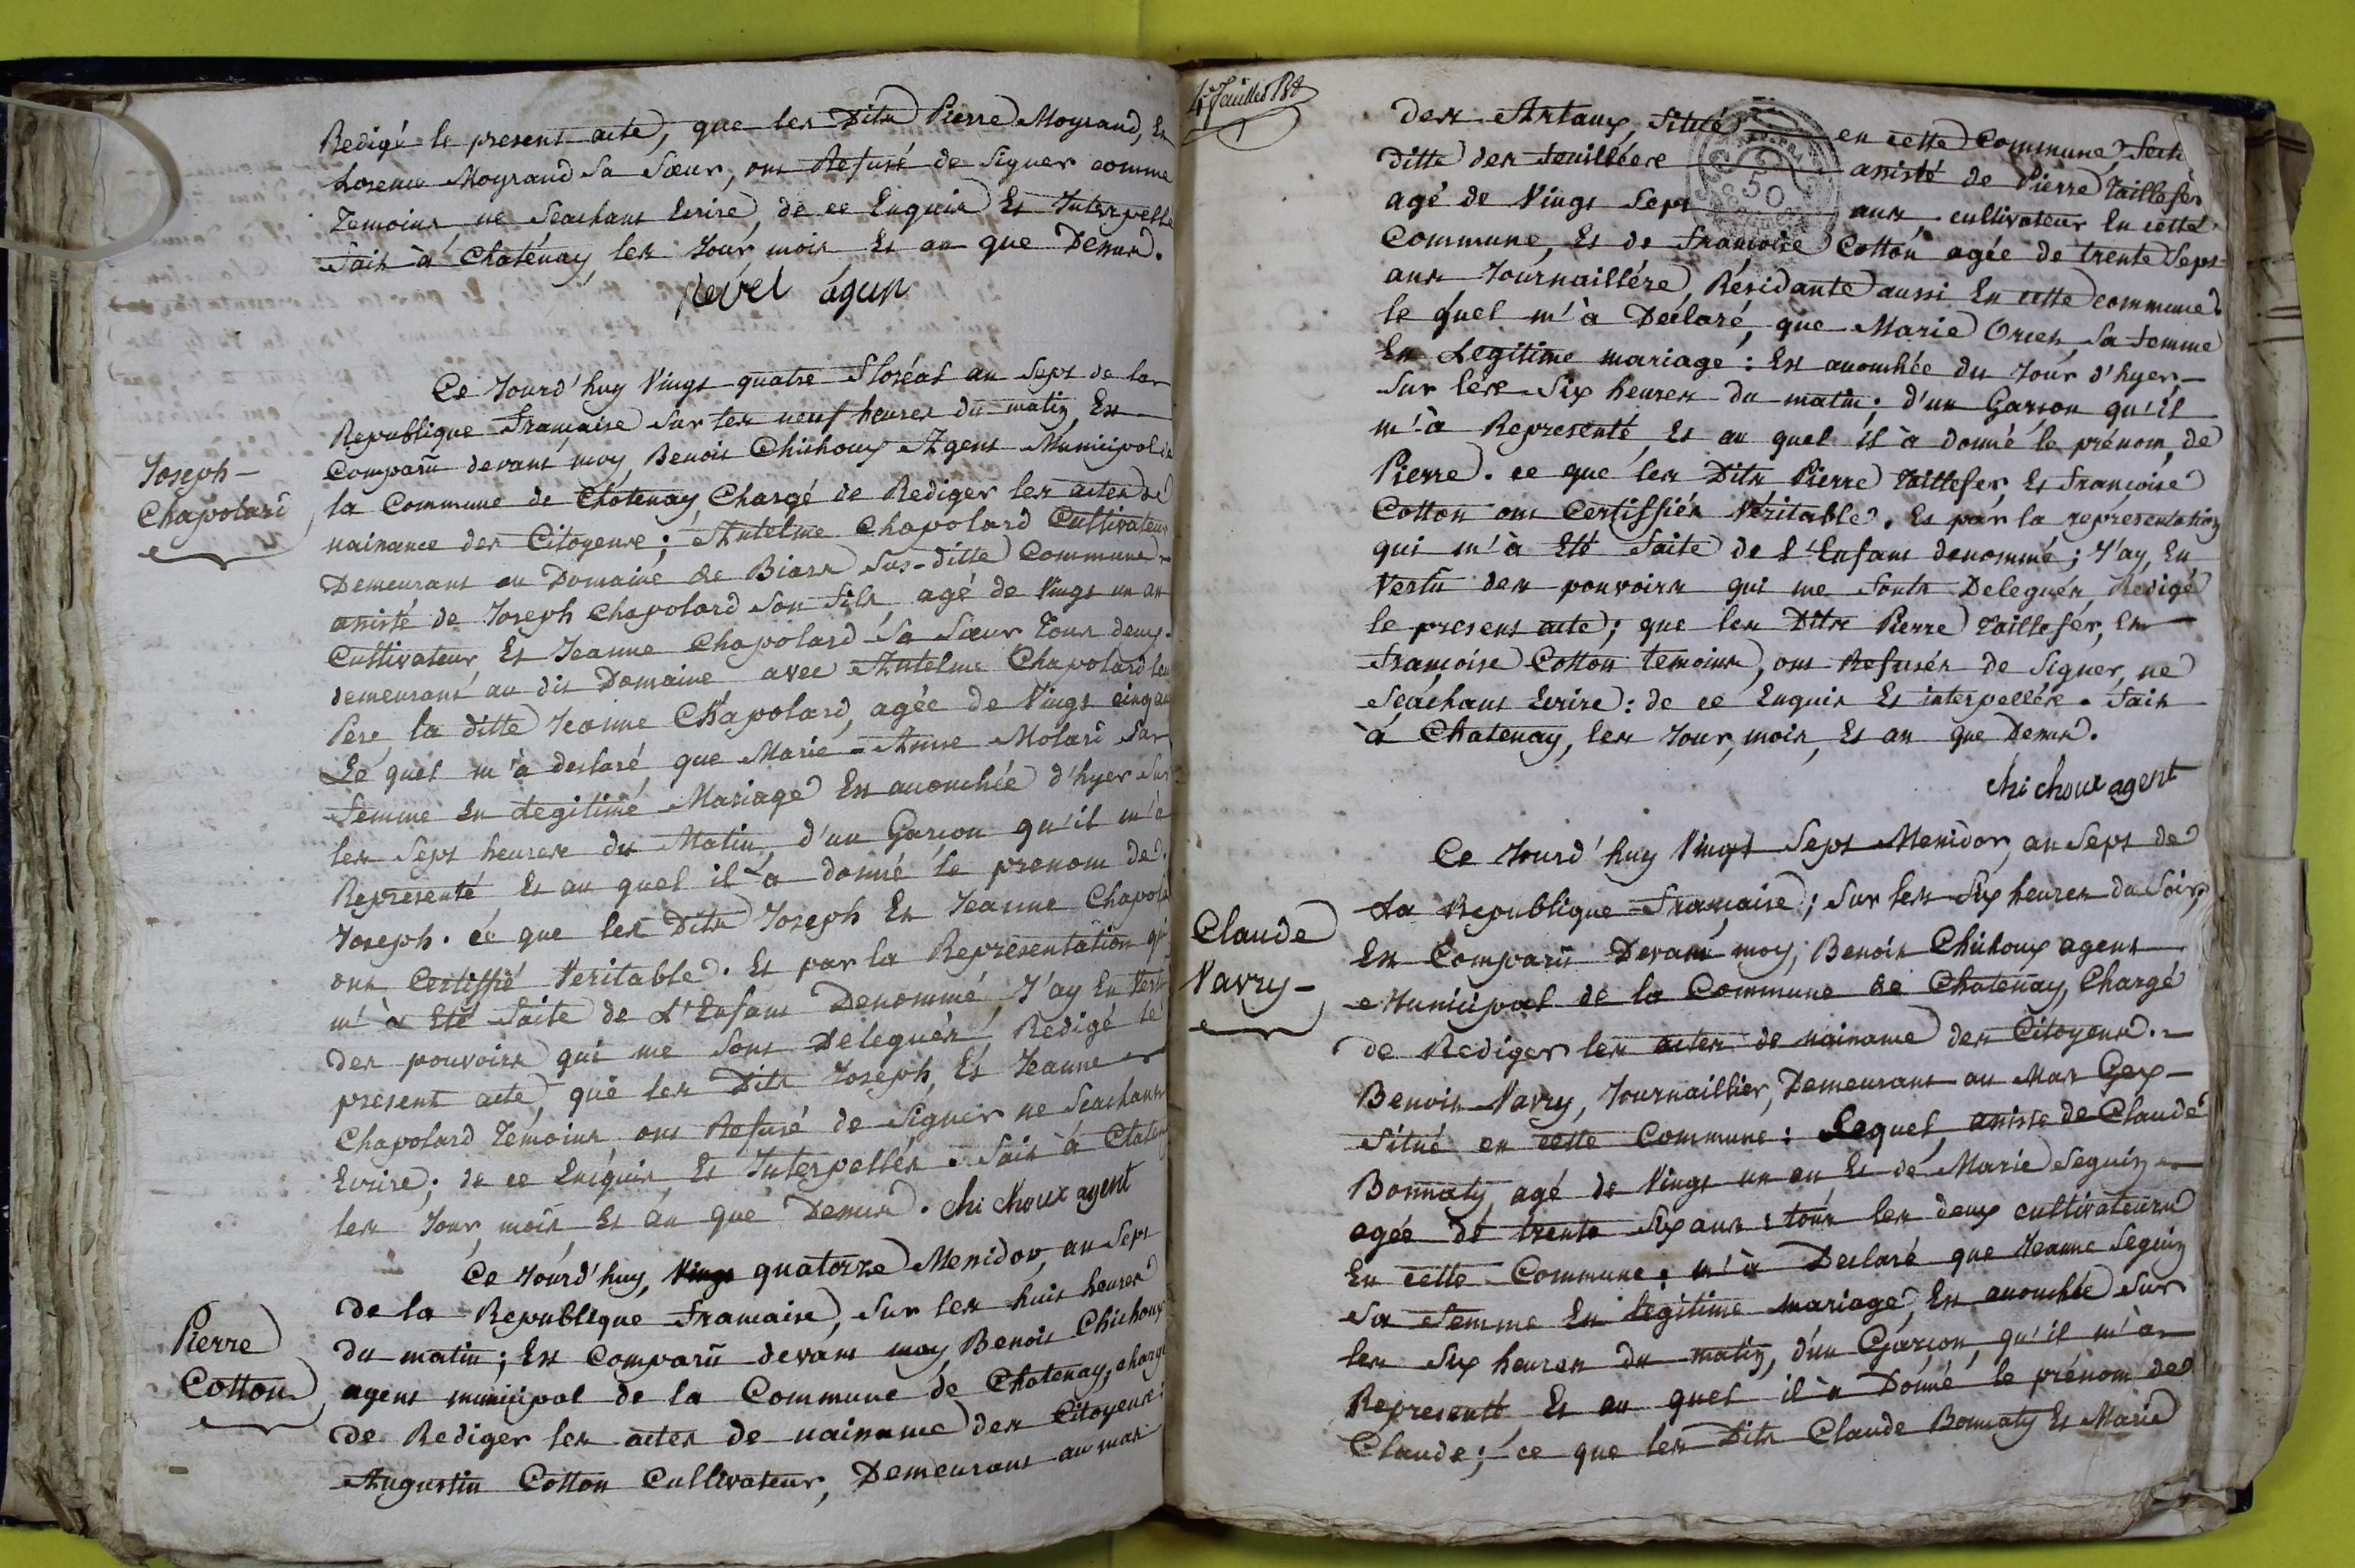 Redigé le present acte, que les Dits Pierre Moyrand, Et
Lorence Moyrand Sa Sœur, ont Refusé de Signer comme
Temoins, ne Scachant Ecrire, de ce Enquis Et Interpellé
Fait à Chatenay les Jour, mois Et an que Dessus.
Revel agen
Ce Jourd'huy Vingt quatre Floréal an Sept de la
Republique Française Sur les neuf heures du matin, Est
Comparû devant moy, Benoit Chichoux Agent Municipal de
Joseph
Chapolard
la Commune de Chatenay, Chargé de Rediger les actes dé
naisance des Citoyens; Antelme Chapolard Cultivateur
Demeurant au Domaine de Biass Sus-ditte Commune
assisté de Joseph Chapolard Son fils agé de Vingt un an
Cultivateur, Et Jeanne Chapolard Sa Sœur Tous deux
demeurant au dit Domaine avec Antelme Chapolard leur
Pere la ditte Jeanne Chapolard, agée de Vingt cinq an
Le quel m'à declaré que Marie-Anne Molard Sa
Femme En Legitime Mariage Est acouchée d'hyer Sur
les Sept heures du Matin, d'un Garcon qu'il m'a
Representé Et au quel il à donné le prenom de
Joseph. cé que les Dits Joseph Et Jeanne Chapola
ont Certiffié Veritable. Et par la Representation qui
m'à Eté Faite de L'Enfant Denommé, J'ay En Vertu
des pouvoirs qui me Sont Delegués, Redigé le
present acte, que les Dits Joseph, Et Jeanne
Chapolard Témoins ont Refusé de Signer ne Scachant
Ecrire; de ce Enquis Et Interpellés. Fait à Chaten
les Jour, mois Et an que Dessus. chi choux agent
Ce Jourd'huy, Vingt quatorze Mesidor, an Sept
de la Republique Francaise, Sur les huit heures
Pierre
Cotton
du matin; Est Comparû devant moy Benoit Chichoux
agent municipal de la Commune de Chatenay, chargé
de Rediger les actes de naisance des Citoyens:
Augustin Cotton Cultivateur, Demeurant au mas
4e Feuillet
des Artaux, Situé en cette Commune, Sect
ditte des assisté de Pierre Taillefer
agé de Vingt Sept ans, cultivateur En cette
Commune, Et de Françoise Cotton agée de trente Sept
ans Journaillére, Résidante aussi En cette commune
le quel m'à Déclaré, que Marie Orcet, Sa femme
En Legitime mariage: Est acouchée du Jour d'hyer
Sur les Six heures du matin; d'un Garson qu'il
m'à Representé, Et au quel il à donné le prénom, de
Pierre. ce que les Dits Pierre Taillefer, Et Françoise
Cotton ont Certiffiés Véritable. Et par la representation
qui m'à Eté Faite de l'Enfant denommé; J'ay, En
Vertû des pouvoirs qui me Sonts Delegués, Redigé
le present acte; que les Dits Pierre Taillefér, Et
Françoise Cotton temoins, ont Refusés de Signer, ne
Scachant Ecrire: de ce Enquis Et interpellés. Fait
à Chatenay, les Jour, mois, Et an que Dessus.
chi choux agent
Ce Jourd'huy Vingt Sept Mesidor, an Sept de
La Republique Française; Sur les Six heures du Soir,
Claude
Navry
Est Comparû Devant moy, Benoit Chichoux agent
Municipal de la Commune de Chatenay, Chargé
de Rediger les actes de naisance des Citoyens.
Benoit Navry, Journaillier, Demeurant au Mas Gex
Situé en cette Commune: Lequel, assisté de Claude
Bonnaty, agé de Vingt un an Et de Marie Seguin
agée de trente Six ans: tous les deux cultivateurs
En cette Commune; m'à Declaré que Jeanne Seguin
Sa Femme En légitime mariage, Est acouchée Sur
les Six heures du matin, d'un Garcon, qu'il m'à
Representé Et au quel il à Donné le prénom de
Claude; ce que les Dits Claude Bonnaty Et Marie